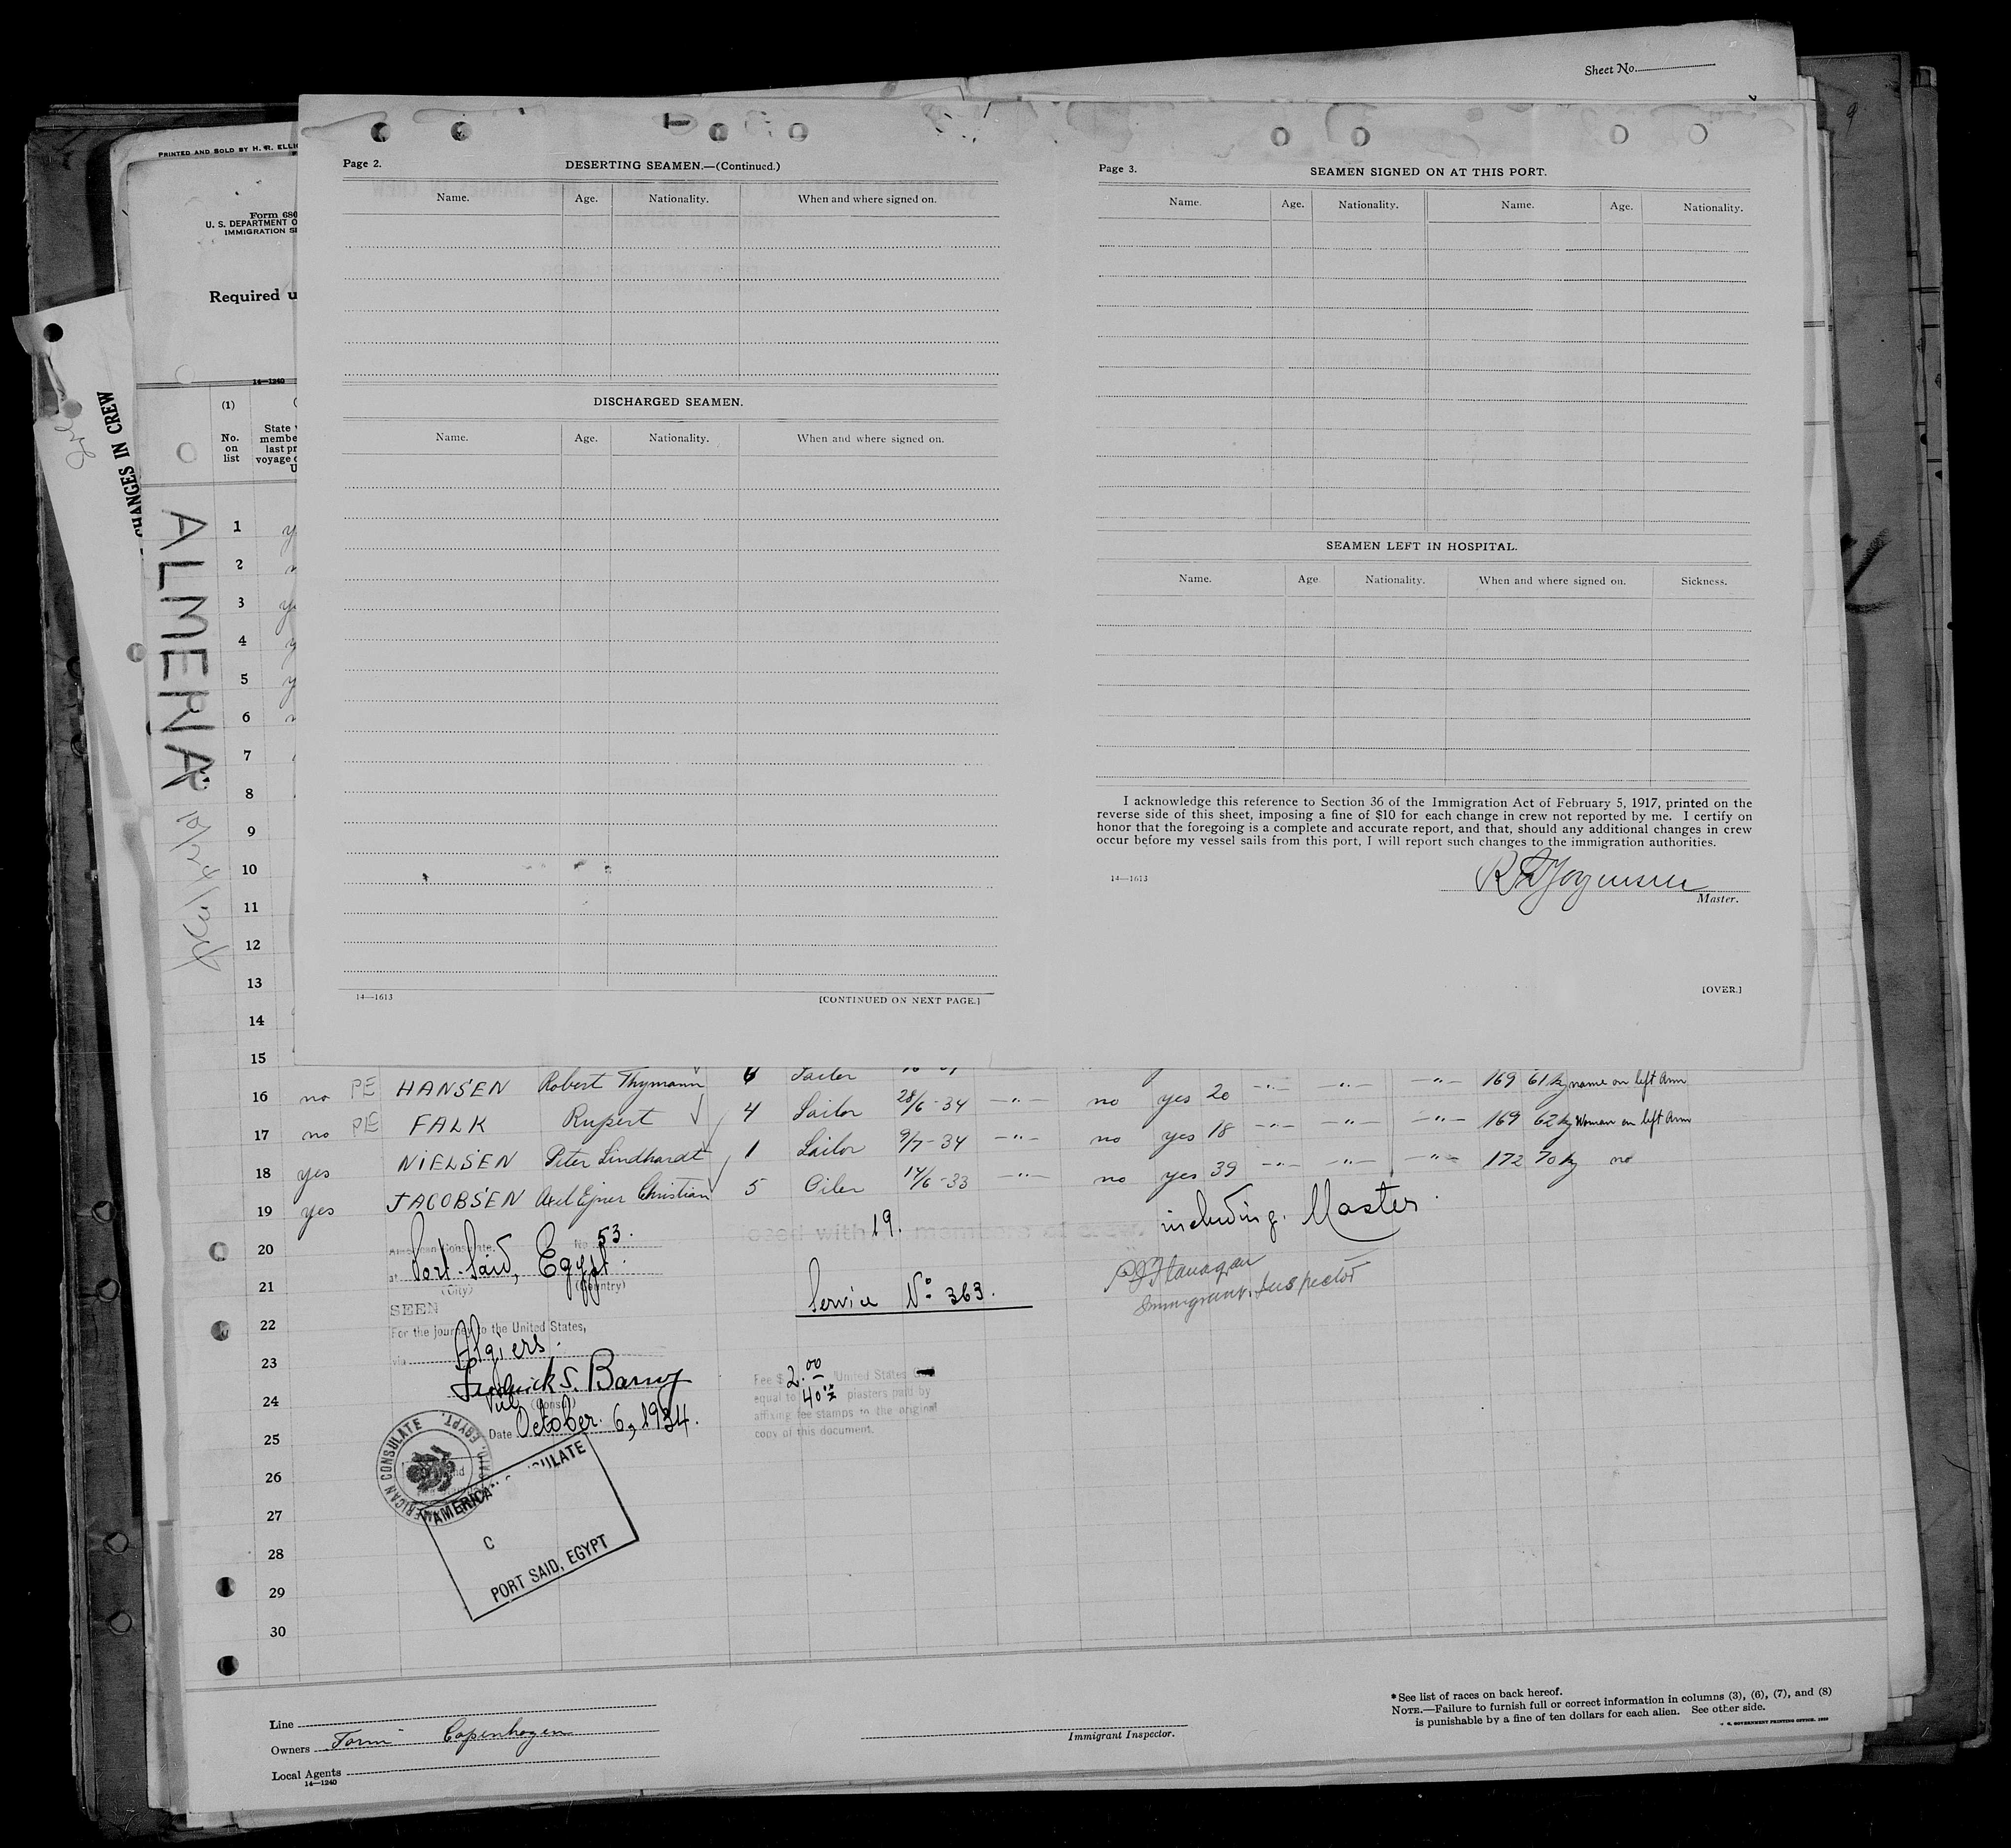 Sheet No.
PRINTED AND SOLD BY H. R. ELLI
Form 680
U. S. DEPARTMENT O
IMMIGRATION S
Required u
14—1240
(1)
No. on list
State
membe
last pr
voyage
U
CHANGES IN CREW
ALMERIA
Page 2.
DESERTING SEAMEN.—(Continued.)
Name. Age. Nationality. When and where signed on.
DISCHARGED SEAMEN.
Name. Age. Nationality. When and where signed on.
14—1613 [CONTINUED ON NEXT PAGE.]
Page 3.
SEAMEN SIGNED ON AT THIS PORT.
Name. Age. Nationality. Name. Age. Nationality.
SEAMEN LEFT IN HOSPITAL.
Name. Age Nationality. When and where signed on. Sickness.
I acknowledge this reference to Section 36 of the Immigration Act of February 5, 1917, printed on the
reverse side of this sheet, imposing a fine of $10 for each change in crew not reported by me. I certify on
honor that the foregoing is a complete and accurate report, and that, should any additional changes in crew
occur before my vessel sails from this port, I will report such changes to the immigration authorities.
14—1613
Master.
[OVER.]
1
2
3
4
5
6
7
8
9
10
11
12
13
14
15
16 no PE HANSEN Robert Thymann 6 Sailor
17 no PE FALK Rupert 4 Sailor 28/6-34 -"- no yes 20 -"- -"- -"- 169 61 kg name on left arm
18 yes NIELSEN Peter Lindhardt 1 Sailor 9/7-34 -"- no yes 18 -"- -"- -"- 169 62 kg Woman on left arm
19 yes JACOBSEN Axel Ejner Christian 5 Oiler 14/6-33 -"- no yes 39 -"- -"- -"- 172 70 kg no
20
21
22
23
24
25
26
27
28
29
30
osed with 19. members of crew. including Master
American Consulate, No. 53.
at Port-Said, Egypt.
(City) (Country)
SEEN
For the journey to the United States,
via Algiers.
Frederick S. Barny
(Consul)
Date October 6, 1934.
Service No 363.
Flanagan
Immigrant Inspector
Fee $ 2.00 United States
equal to piasters paid by
affixing fee stamps to the original
copy of this document.
AMERICAN CONSULATE
PORT SAID, EGYPT.
AMERICA ULATE
C
PORT SAID, EGYPT
Line
Owners Torm Copenhagen
Local Agents
14—1240
Immigrant Inspector.
*See list of races on back hereof.
NOTE.—Failure to furnish full or correct information in columns (3), (6), (7), and (8)
is punishable by a fine of ten dollars for each alien. See other side.
GOVERNMENT PRINTING OFFICE